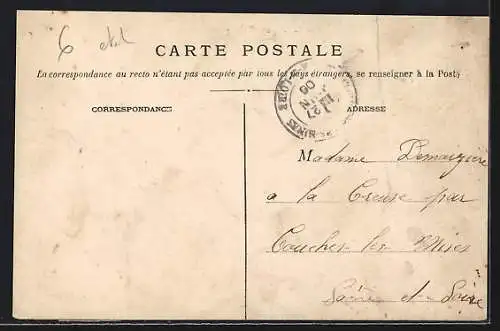 6
CARTE POSTALE
La correspondance au recto n'étant pas acceptée par tous les pays étrangers, se renseigner à la Poste
CORRESPONDANCE
ADRESSE
27
JUIN
MINES
LOIRE
Madame
a la Creuse par
les Mines
Saône et Loire